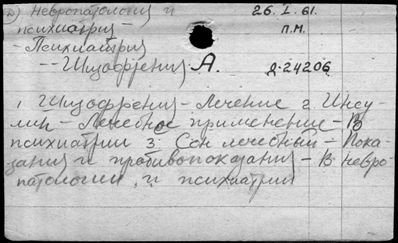 2) Невропатология и 26.I.61.
психиатрия - П.М.
- Психиатрия
-- Шизофрения А. Д-24206
1 Шизофрения - Лечение 2. Инсу-
лин - Лечебное применение - В
психиатрии 3. Сон лечебный - Пока
зания и противопоказания - В невро
патологии, и психиатрии